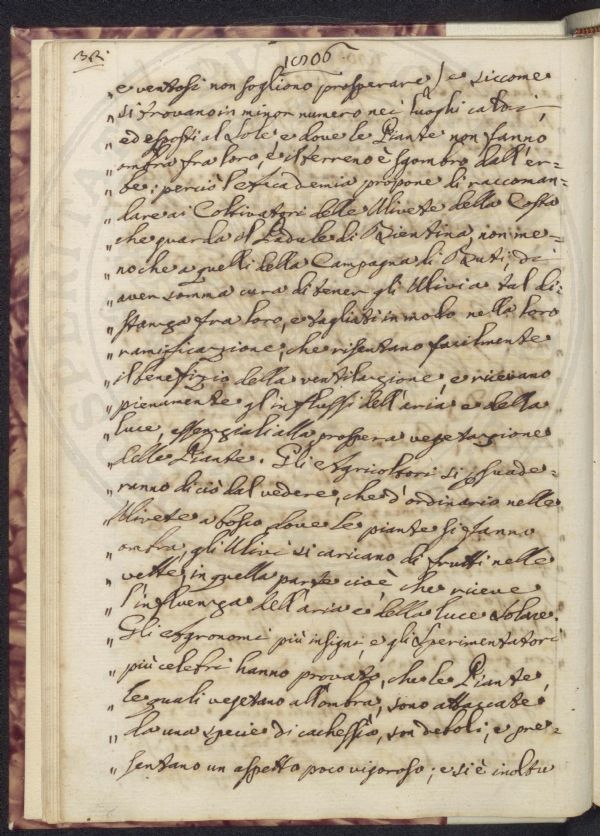 32.
1806
" e ventosi non sogliono prosperare) e siccome
" si trovano in minor numero nei luoghi caldi,
" ed esposti al Sole e dove le Piante non fanno
" ombra fra loro, e il terreno è sgombro dall'er=
" be; perciò l'Accademia propone di raccoman=
" dare ai Coltivatori delle Ulivete della Costa
" che guarda il Padule di Bientina, non me=
" no che a quelli della Campagna di Buti, di
" aver somma cura di tener gli Ulivi a tal di=
" stanza fra loro, e tagliati in modo nella loro
" ramificazione, che risentano facilmente
" il benefizio della ventilazione, e ricevano
" pienamente gl'influssi dell'aria e della
" luce, essenziali alla prospera vegetazione
" delle Piante. Gli Agricoltori si psuade=
" ranno di ciò dal vedere, che d'ordinario nelle
" Ulivete a bosco, dove le piante si fanno
" ombra, gli Ulivi si caricano di frutti nelle
" vette, in quella parte cioè, che riceve
" l'influenza dell'aria e della luce Solare.
" Gli Agronomi più insigni, e gli Sperimentatori
" più celebri hanno provato, che le Piante,
" le quali vegetano all'ombra, sono attaccate
" da una specie di cachessìa, son deboli, e pre=
" sentano un aspetto poco vigoroso; e si è inoltre